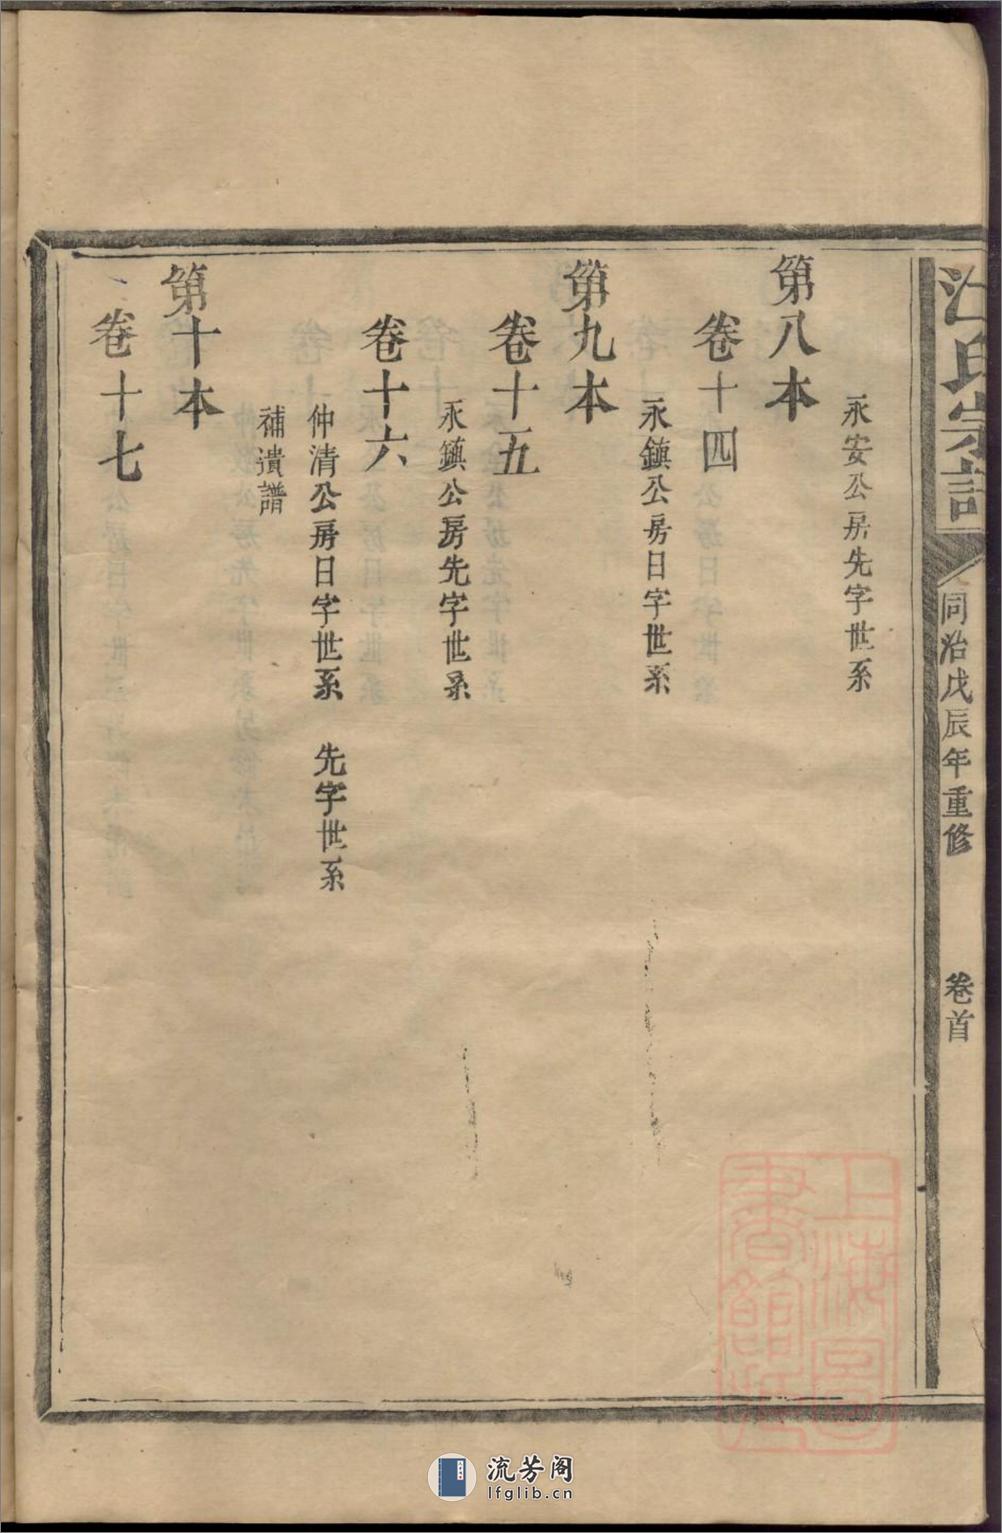 江氏宗譜
同治戊辰年重修
卷首
永安公房先字世系
第八本
卷十四
永鎮公房日字世系
第九本
卷十五
永鎮公房先字世系
卷十六
仲清公房日字世系 先字世系
補遺譜
第十本
卷十七
上海圖
書館藏
流芳阁
lfglib.cn